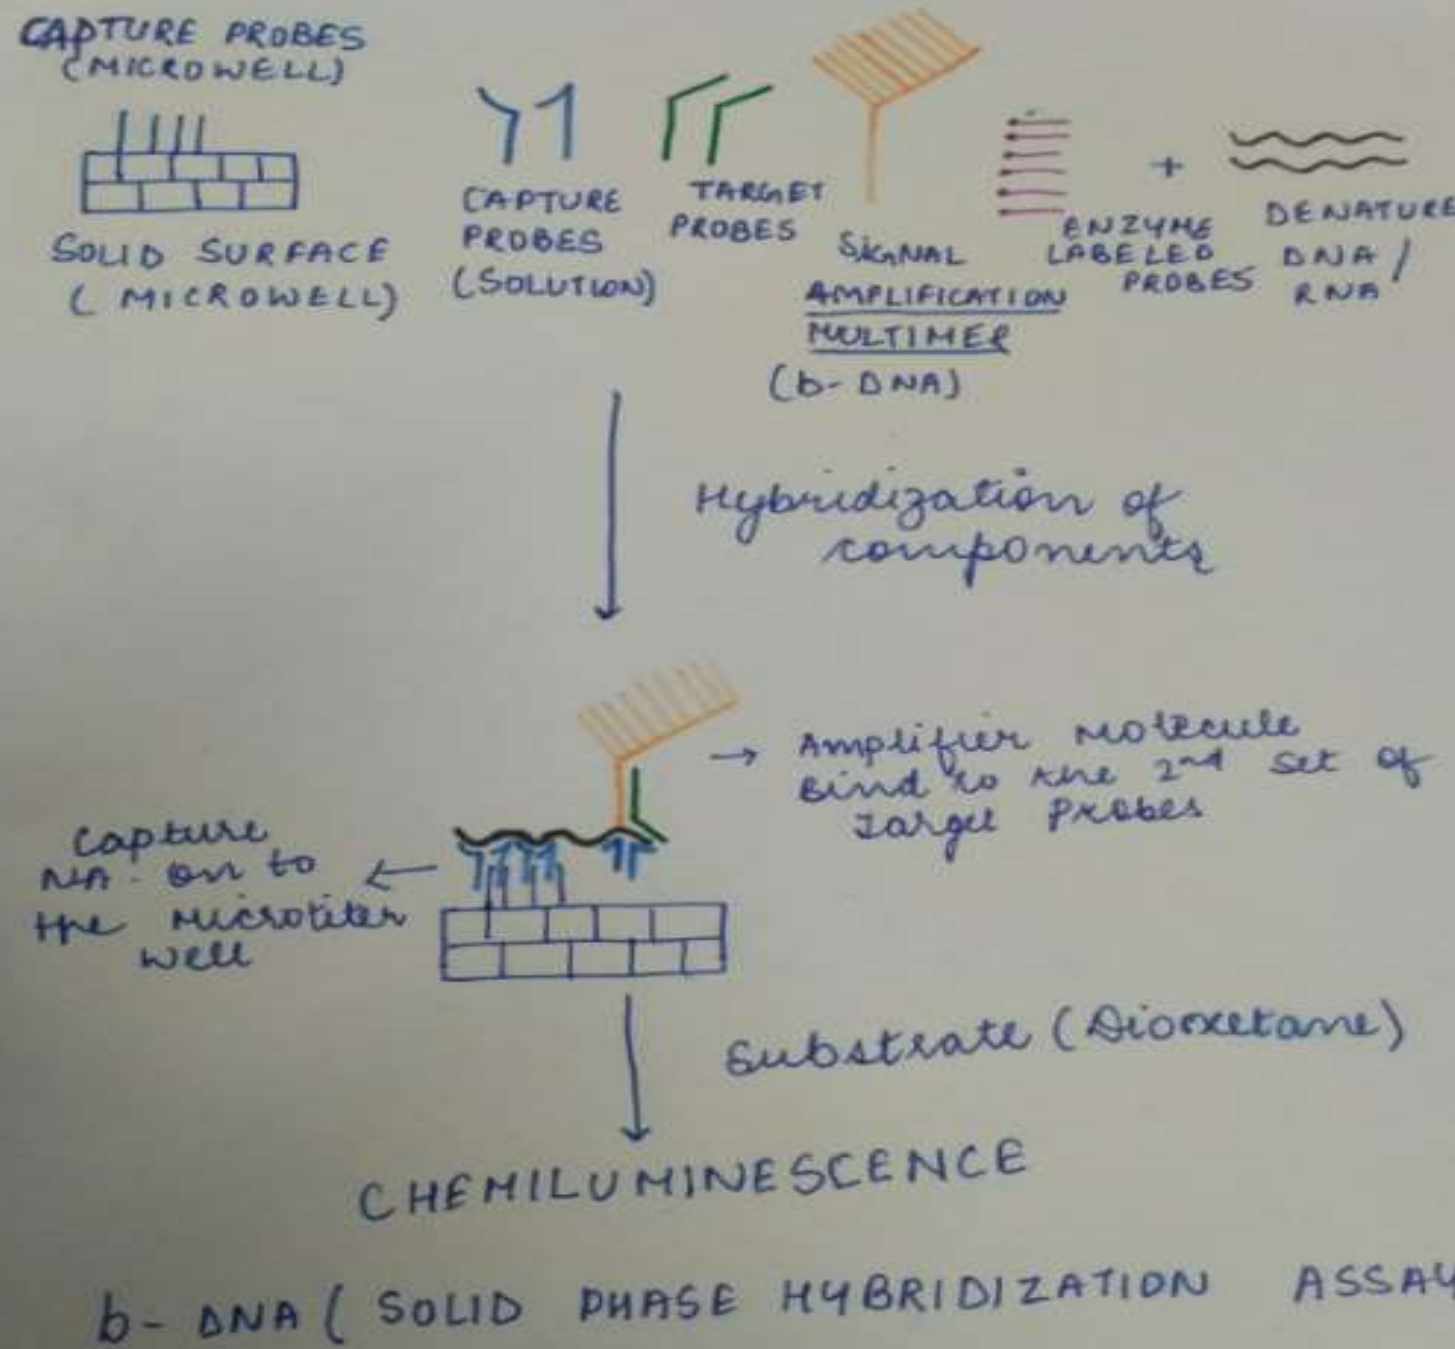 CAPTURE PROBES
(MICROWELL)
SOLID SURFACE
(MICROWELL)
CAPTURE
PROBES
(SOLUTION)
TARGET
PROBES
SIGNAL
AMPLIFICATION
MULTIMER
(b-DNA)
+
ENZYME
LABELED
PROBES
DENATURE
DNA/
RNA
Hybridization of
components
→ Amplifier molecule
Bind to the 2nd set of
Target Probes
Capture
NA. on to
the Microtiter
well
Substrate (Dioxetane)
CHEMILUMINESCENCE
b-DNA (SOLID PHASE HYBRIDIZATION ASSAY